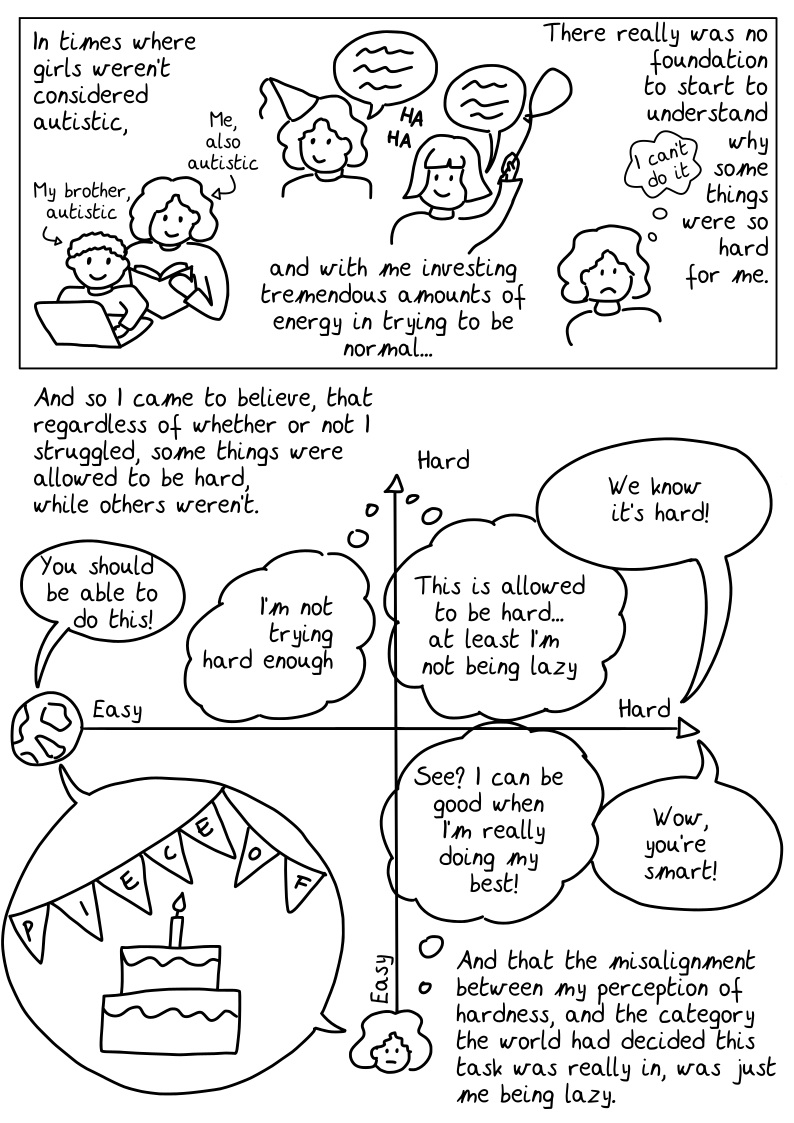 In times where
girls weren't
considered
autistic,
Me,
also
autistic
My brother,
autistic
HA
HA
and with me investing
tremendous amounts of
energy in trying to be
normal...
There really was no
foundation
to start to
understand
why
some
things
were so
hard
for me.
I can't
do it
And so I came to believe, that
regardless of whether or not I
struggled, some things were
allowed to be hard,
while others weren't.
Hard
We know
it's hard!
You should
be able to
do this!
I'm not
trying
hard enough
This is allowed
to be hard...
at least I'm
not being lazy
Easy
Hard
See? I can be
good when
I'm really
doing my
best!
Wow,
you're
smart!
PIECE OF
Easy
And that the misalignment
between my perception of
hardness, and the category
the world had decided this
task was really in, was just
me being lazy.